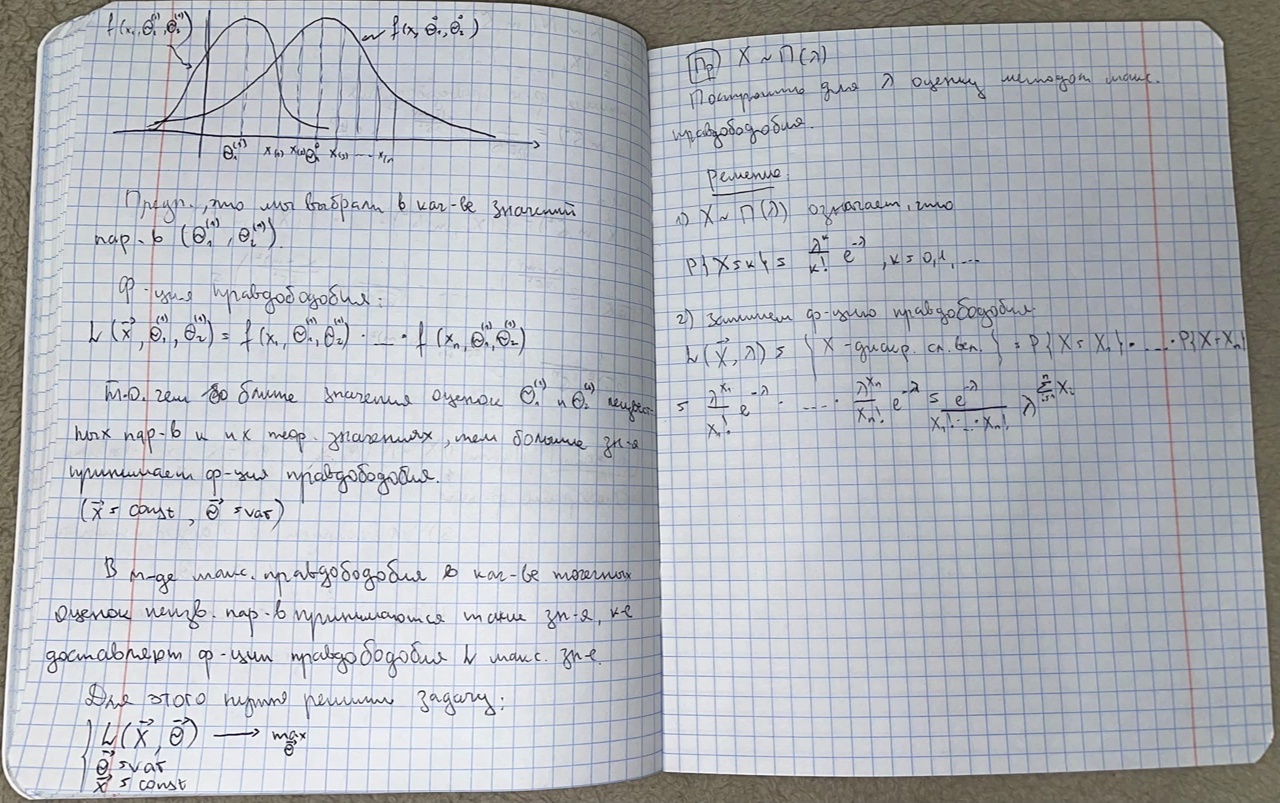 f(x, Θ₁⁽¹⁾, Θ₂⁽¹⁾)
f(x, Θ₁⁰, Θ₂⁰)
Θ₁⁽¹⁾ x₍₁₎ x₍₂₎ Θ₁⁰ x₍₃₎ ... x₍ₙ₎
Предп., что мы выбрали в кач-ве значений
пар-в (Θ₁⁽¹⁾, Θ₂⁽¹⁾).
Ф-ция правдободобия:
L(x⃗, Θ₁⁽¹⁾, Θ₂⁽¹⁾) = f(x₁, Θ₁⁽¹⁾, Θ₂⁽¹⁾) · ... · f(xₙ, Θ₁⁽¹⁾, Θ₂⁽¹⁾)
Т.о. чем ближе значения оценок Θ₁⁽¹⁾ и Θ₂⁽¹⁾ неизвест-
ных пар-в к их теор. значениях, тем больше зн-я
принимает ф-ция правдободобия.
(x⃗ = const, Θ⃗ = var)
В м-де макс. правдободобия в кач-ве точечных
оценок неизв. пар-в принимаются такие зн-я, к-е
доставляют ф-ции правдободобия L макс. зн-е.
Для этого нужно решить задачу:
{ L(X⃗, Θ⃗) → max Θ⃗
Θ⃗ = var
X⃗ = const
Пр X ~ П(λ)
Построить для λ оценку методом макс.
правдободобия.
Решение:
1) X ~ П(λ) означает, что
P{X=k} = λᵏ/k! e^(-λ), k = 0,1,...
2) Запишем ф-цию правдободобия.
L(X⃗, λ) = {X - дискр. сл. вел.} = P{X = X₁} · ... · P{X = Xₙ}
= λ^(X₁)/X₁! e^(-λ) · ... · λ^(Xₙ)/Xₙ! e^(-λ) = e^(-λ)/(X₁! · ... · Xₙ!) λ^(Σᵢ₌₁ⁿ Xᵢ)